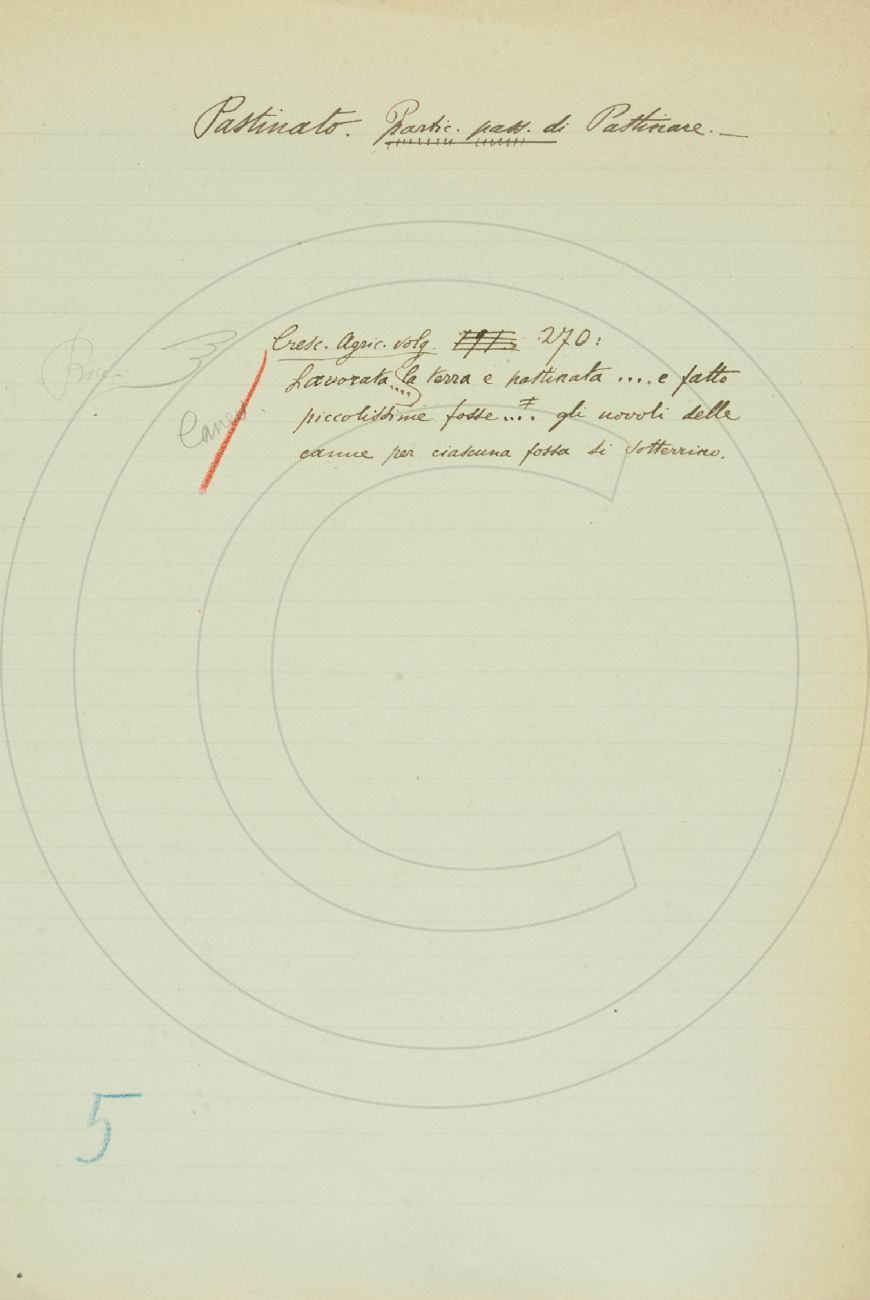 Pastinato. Partic. pass. di Pastinare. —
Cresc. Agric. volg. 270:
Lavorata la terra e pastinata .... e fatto
piccolissime fosse .... gli uovoli delle
canne per ciascuna fossa si sotterrino.
5